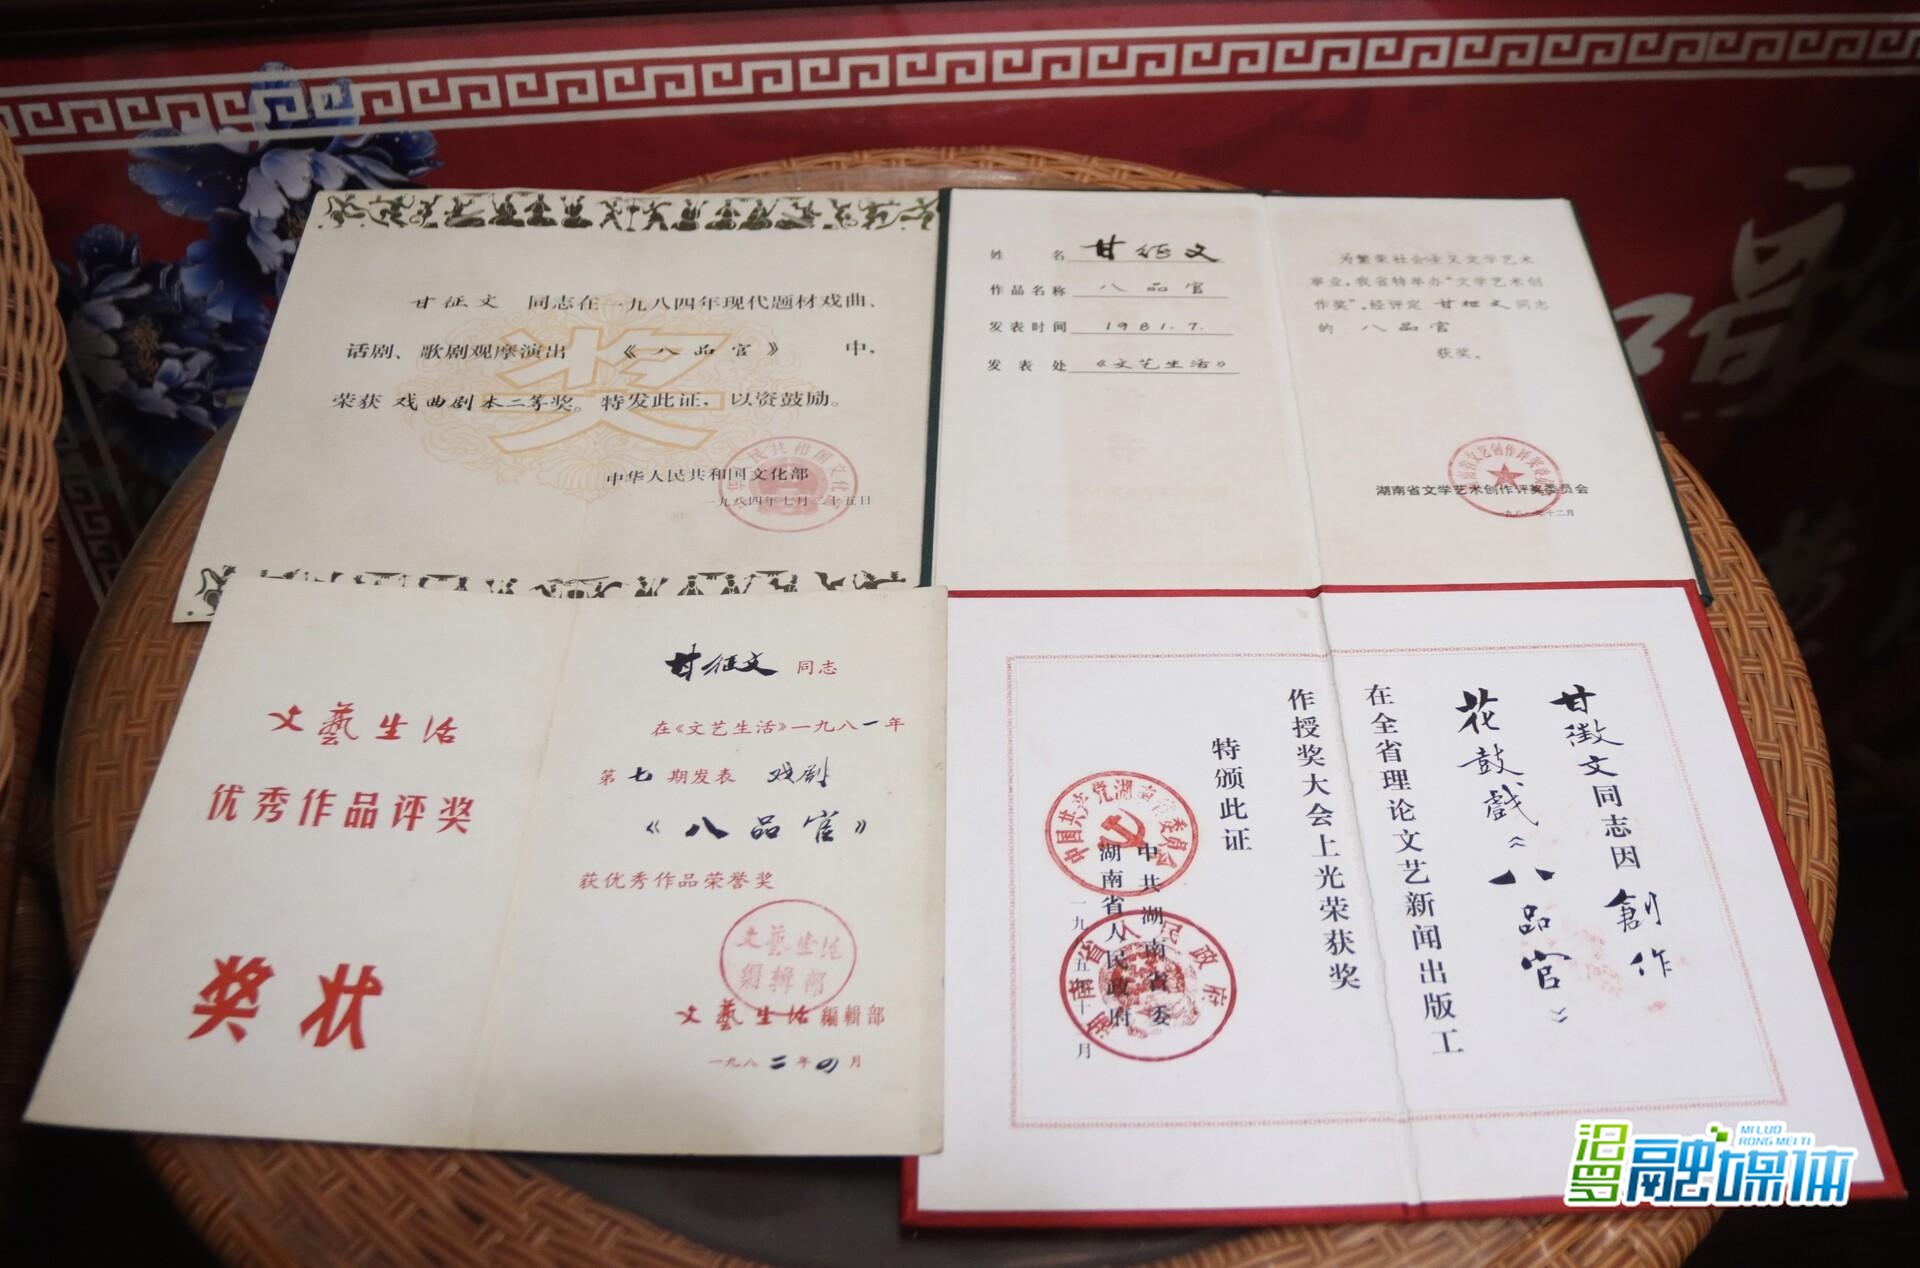 甘征文 同志在一九八四年现代题材戏曲、
话剧、歌剧观摩演出 《八品官》 中,
荣获 戏曲剧本二等奖。特发此证,以资鼓励。
奖
中华人民共和国文化部
一九八四年七月二十五日
姓名 甘征文
作品名称 八品官
发表时间 1981.7.
发表处 《文艺生活》
为繁荣社会主义文学艺术
事业,我省特举办“文学艺术创
作奖”,经评定 甘征文同志
的 八品官
获奖。
湖南省文学艺术创作评奖委员会
文藝生活
优秀作品评奖
奖状
甘征文 同志
在《文艺生活》一九八一年
第七期发表 戏剧
《八品官》
获优秀作品荣誉奖
文藝生活
编辑部
文藝生活编辑部
一九八二年四月
甘徵文同志因創作
花鼓戲《八品官》
在全省理论文艺新闻出版工
作授奖大会上光荣获奖
特颁此证
中共湖南省委
湖南省人民政府
中国共产党湖南省委员会
湖南省人民政府
汨罗
融媒体
MI LUO
RONG MEI TI